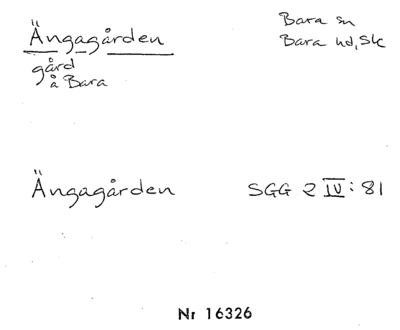 Ängagården
Bara sn
Bara hd, Sk
gård
å Bara
Ängagården SGG 2 IV: 81
Nr 16326